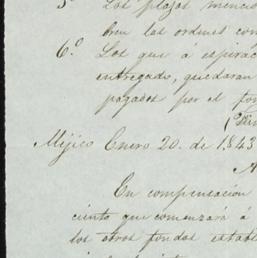 5º Los plazos mencio
bren las ordenes con
6º Los que á espirac
entregado, quedaran
pagados por el fon
Méjico Enero 20. de 1843
A
En compensacion
ciento que comenzará á
los otros fondos estable